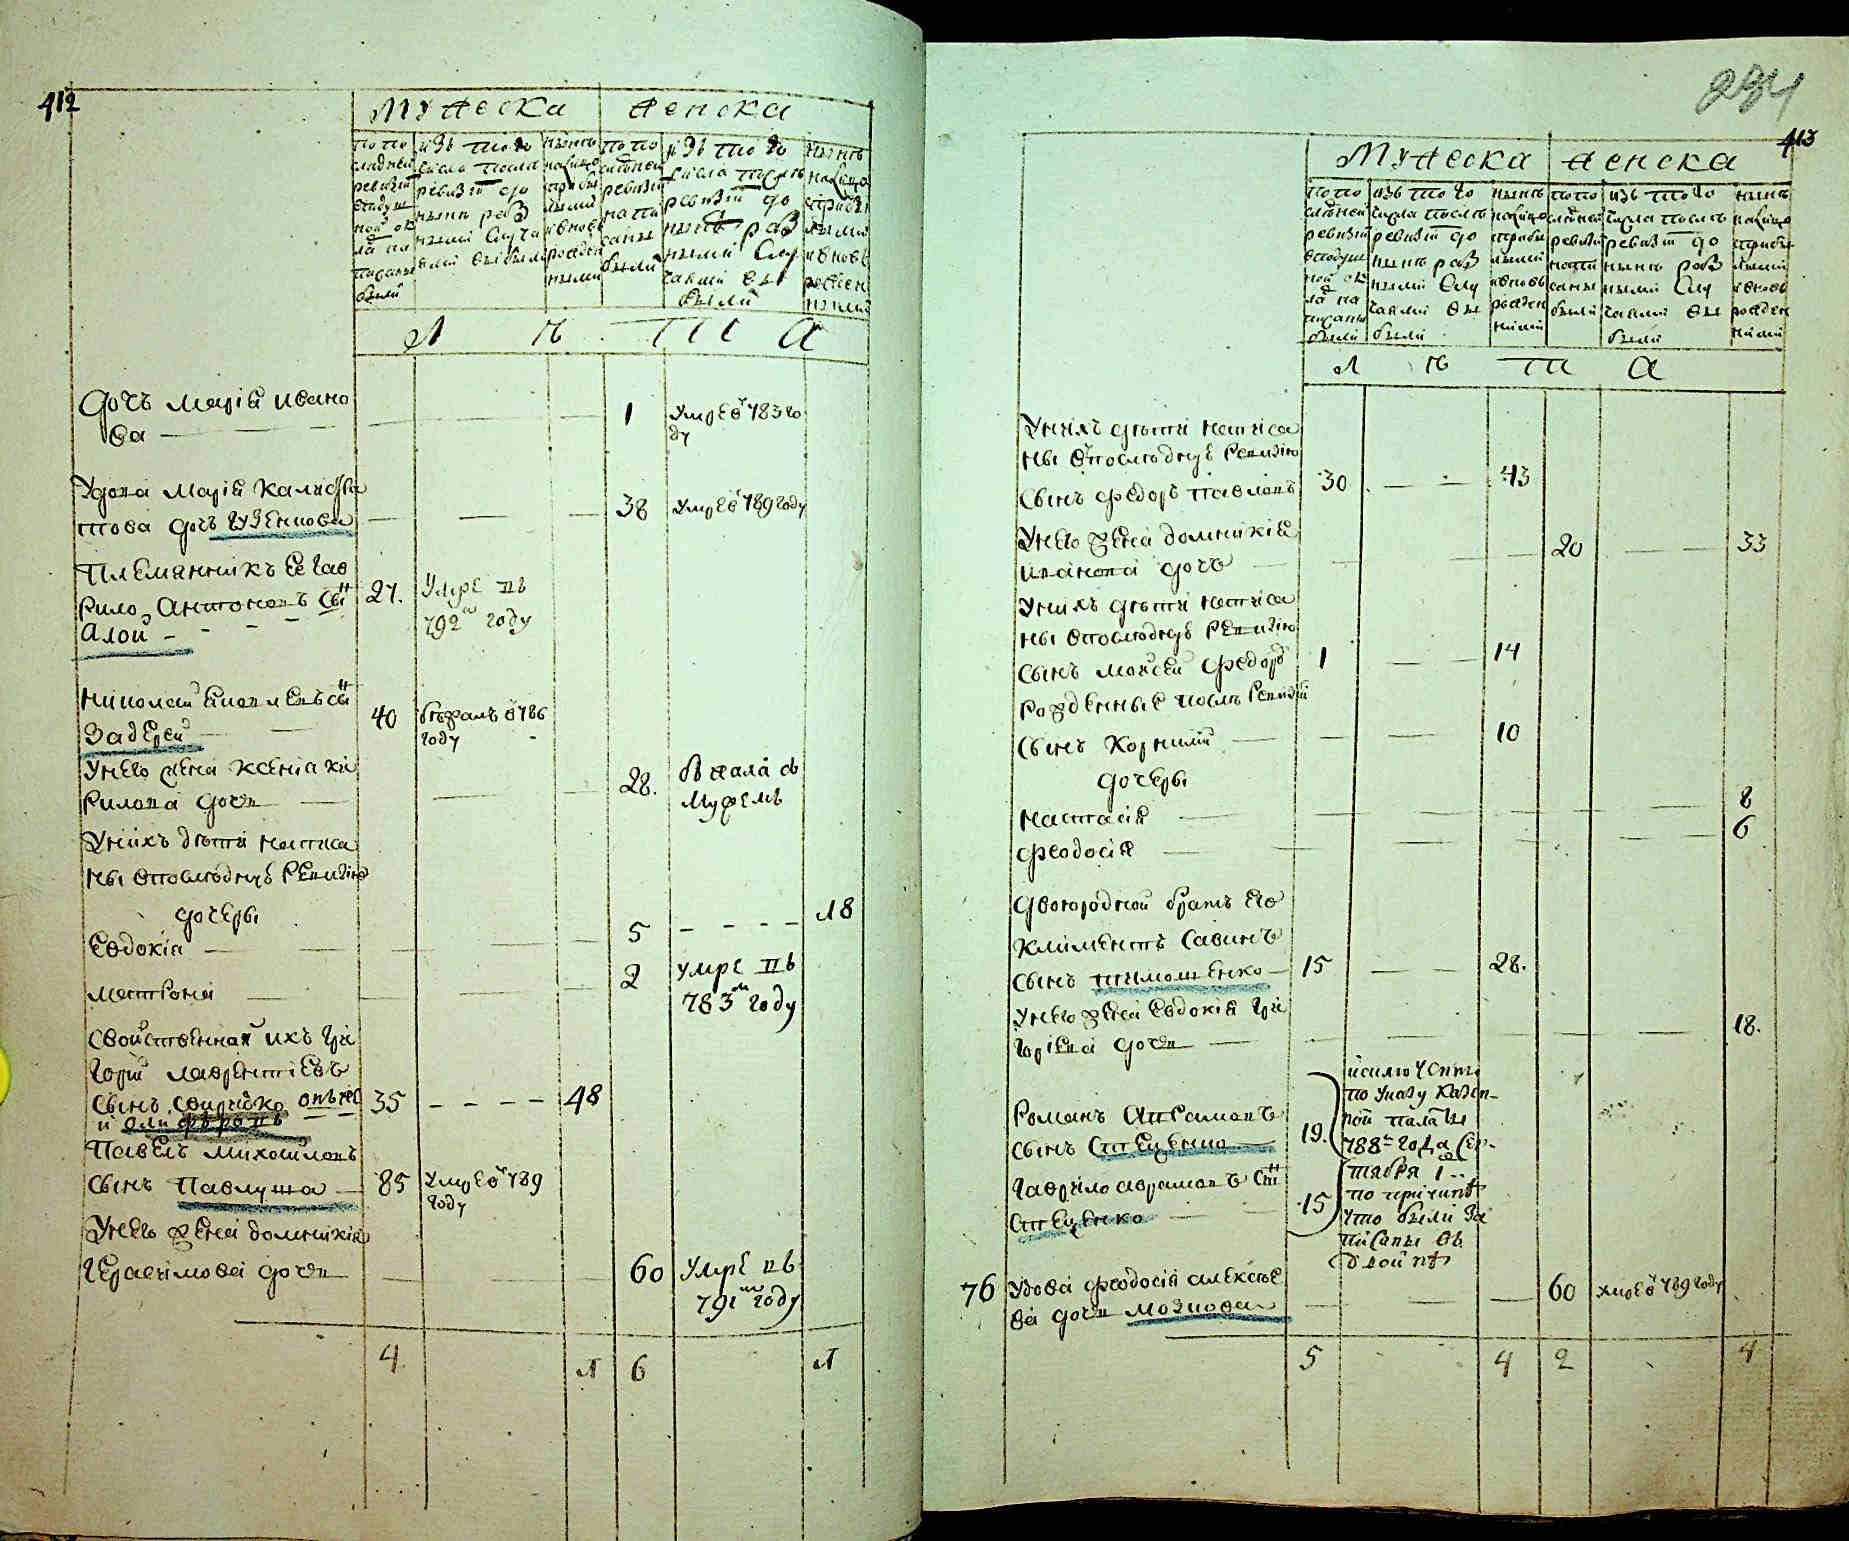 412
Мужеска женска
по по
следней
ревизіи
в подуш
ной ок
ладъ на
писаны
были
изъ того
числа после
ревизіи до
нынѣ раз
ными случа
ями выбыло
нынѣ
на лицо
прибы
лыми
и вновь
рожден
ными
по по
следней
ревизіи
напи
саны
были
изъ того
числа послѣ
ревизіи до
нынѣ раз
ными слу
чаями вы
были
нынѣ
на лицо
прибы
лыми
и вновь
рожден
ными
л ѣ т а
дочь марія ивано
ва 1 умре в 783 го
ду
удова марія калист
това дочь 38 умре в 789 году
племянникъ ее гав
рило антоновъ сынъ 27. умре въ
алои 792 году
николай яковлевъ сынъ
задерей 40 бежалъ в 786
году
у него жена ксенія ки
рилова дочь 28. бежала съ
мужемъ
у нихъ дѣти написа
ны в последнюю ревизію
дочери
евдокіа 5 18
матрона 2 умре въ
783 году
свойственная ихъ гри
горій лаврентіевъ
сынъ 35 48
и
павелъ михайловъ
сынъ павлуша 85 умре в 789
году
у него жена домникія
герасимова дочь 60 умре въ
791 году
4 1 6 1
284
413
Мужеска женска
по по
следней
ревизіи
в подуш
ной ок
ладъ на
писаны
были
изъ того
числа послѣ
ревизіи до
нынѣ раз
ными слу
чаями вы
были
нынѣ
на лицо
прибы
лыми
и вновь
рожден
ными
по по
следней
ревизіи
напи
саны
были
изъ того
числа послѣ
ревизіи до
нынѣ раз
ными слу
чаями вы
были
нынѣ
на лицо
прибы
лыми
и вновь
рожден
ными
л ѣ т а
у нихъ дѣти написа
ны в последнюю ревизію
сынъ федоръ павловъ 30 43
у него жена домникія
иванова дочь 20 33
у нихъ дѣти написа
ны в последнюю ревизію
сынъ моисей федоровъ 1 14
рожденные послѣ ревизіи
сынъ корнилій 10
дочери
настасія 8
феодосія 6
двоюродной братъ его
климентъ савинъ
сынъ тимошенко 15 28.
у него жена евдокія гри
горіева дочь 18.
романъ авраамовъ
сынъ стеценко 19.
гаврило аврамовъ сынъ
стеценко 15
исключены
по указу казен-
ной палаты
788 года сен-
тября 1
по причинѣ
что были за
писаны въ
двойнѣ
76 удова феодосія алексѣе
ва дочь мознова 60 умре в 789 году
5 4 2 4